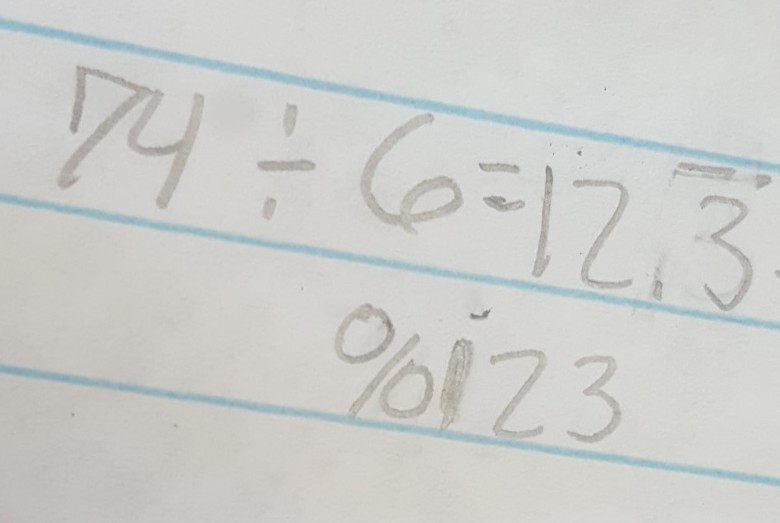 74 ÷ 6 = 12.3̅
%123